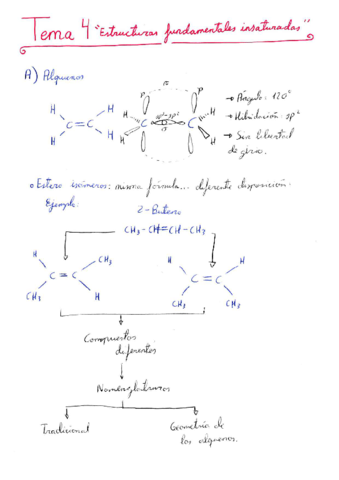 Tema 4 "Estructuras fundamentales insaturadas"
A) Alquenos
π
H H P P
H C sp²-sp² C H
C = C
σ
H H H H
→ Ángulo: 120°
→ Hibridación: sp²
→ Sin libertad
de giro.
o Estereo isómeros: misma fórmula... diferente disposición.
Ejemplo:
2-Buteno
CH₃-CH=CH-CH₃
H CH₃
C = C
CH₃ H
H H
C = C
CH₃ CH₃
Compuestos
diferentes
Tradicional
Geometría de
los alquenos.